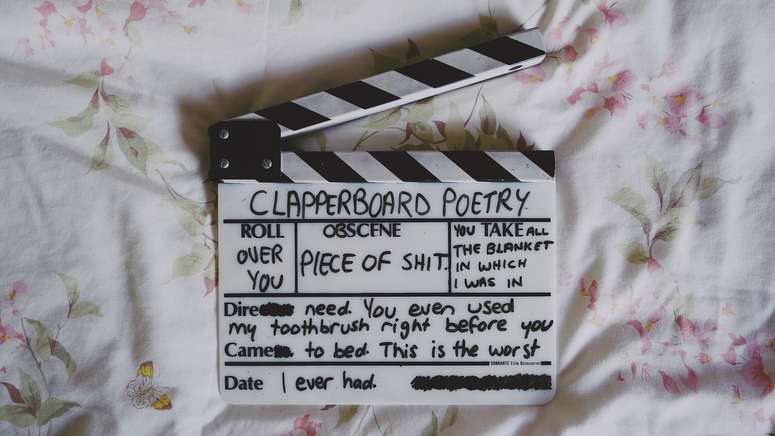 CLAPPERBOARD POETRY
ROLL
OVER
YOU
OBSCENE
PIECE OF SHIT.
YOU TAKE ALL
THE BLANKET
IN WHICH
I WAS IN
Dire need. You even used
my toothbrush right before you
Came to bed. This is the worst
Date I ever had.